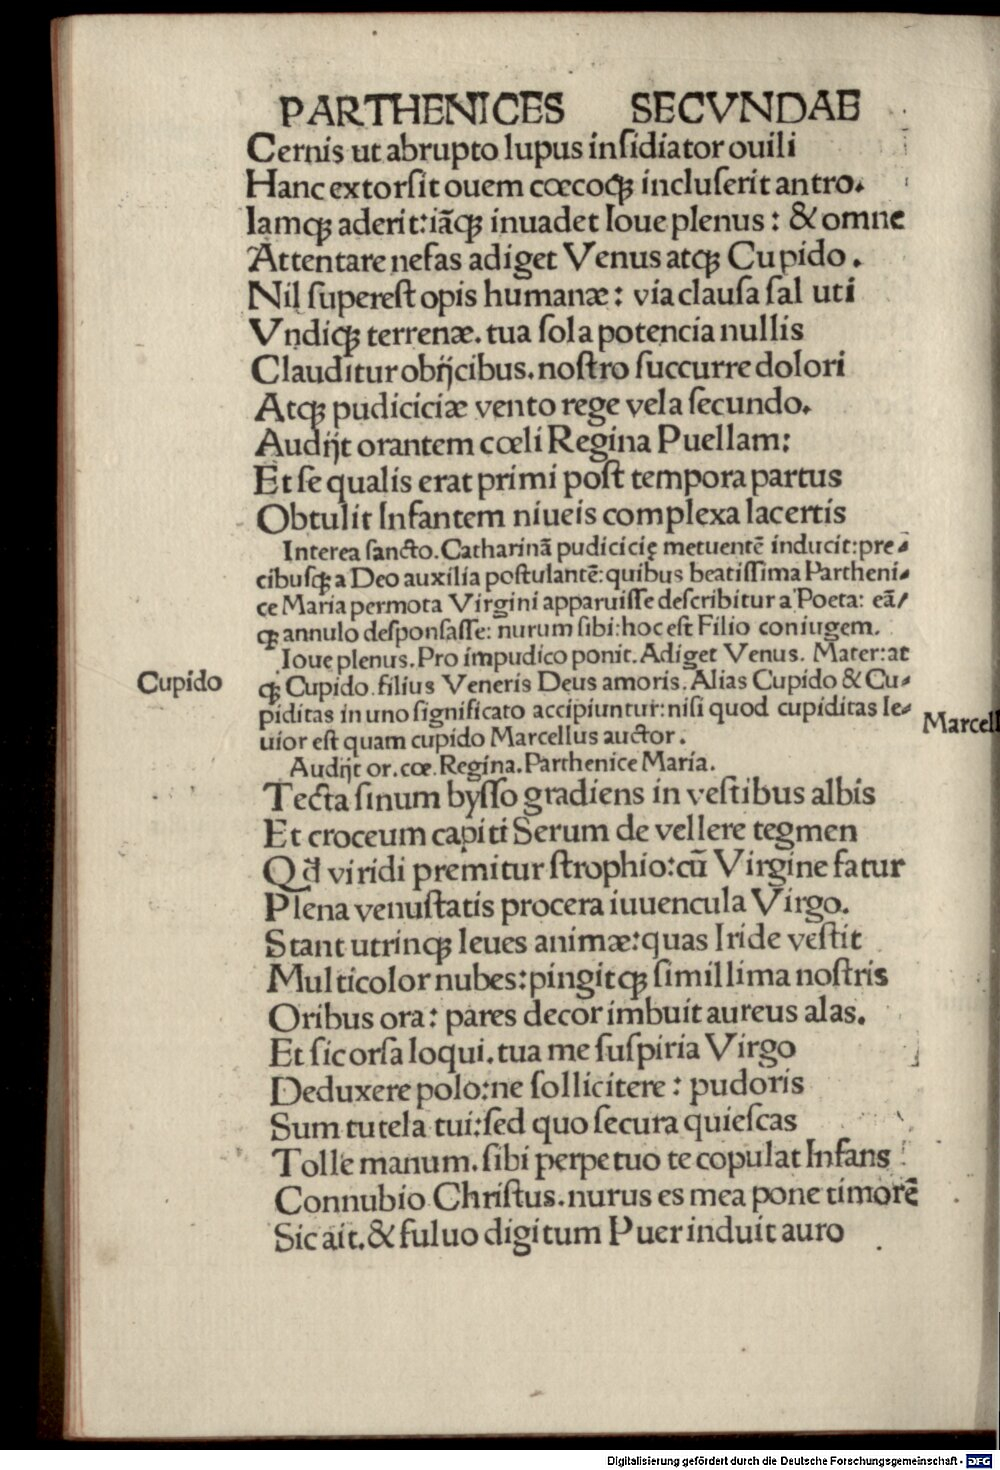 PARTHENICES SECVNDAE
Cernis ut abrupto lupus insidiator ouili
Hanc extorsit ouem cœcoqꝫ incluserit antro.
Iamqꝫ aderit: iāqꝫ inuadet Ioue plenus: & omne
Attentare nefas adiget Venus atqꝫ Cupido.
Nil superest opis humanæ: via clausa sal uti
Vndiqꝫ terrenæ. tua sola potencia nullis
Clauditur obijcibus. nostro succurre dolori
Atqꝫ pudiciciæ vento rege vela secundo.
Audijt orantem cœli Regina Puellam:
Et se qualis erat primi post tempora partus
Obtulit Infantem niueis complexa lacertis
Interea sancto. Catharinā pudicicię metuentē inducit: pre-
cibusqꝫ a Deo auxilia postulantē: quibus beatissima Partheni-
ce Maria permota Virgini apparuisse describitur a Poeta: eā/
qꝫ annulo desponsasse: nurum sibi: hoc est Filio coniugem.
Ioue plenus. Pro impudico ponit. Adiget Venus. Mater: at
Cupido
qꝫ Cupido. filius Veneris Deus amoris. Alias Cupido & Cu-
piditas in uno significato accipiuntur: nisi quod cupiditas le-
Marcell
uior est quam cupido Marcellus auctor.
Audijt or. cœ. Regina. Parthenice Maria.
Tecta sinum bysso gradiens in vestibus albis
Et croceum capiti Serum de vellere tegmen
Qđ viridi premitur strophio: cū Virgine fatur
Plena venustatis procera iuuencula Virgo.
Stant utrinqꝫ leues animæ: quas Iride vestit
Multicolor nubes: pingitqꝫ simillima nostris
Oribus ora: pares decor imbuit aureus alas.
Et sic orsa loqui. tua me suspiria Virgo
Deduxere polo: ne sollicitere: pudoris
Sum tutela tui: sed quo secura quiescas
Tolle manum. sibi perpetuo te copulat Infans
Connubio Christus. nurus es mea pone timorē
Sic ait. & fuluo digitum Puer induit auro
Digitalisierung gefördert durch die Deutsche Forschungsgemeinschaft - DFG